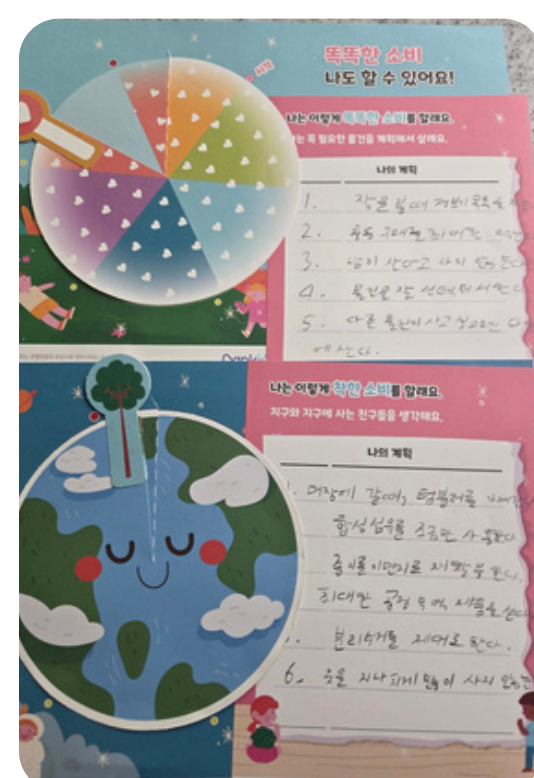 똑똑한 소비
나도 할 수 있어요!
시작
나는 이렇게 똑똑한 소비를 할래요.
는 꼭 필요한 물건을 계획해서 살래요.
나의 계획
1. 장을 볼 때
2.
3. 남이 산다고 사지 않는다
4. 물건을 잘 선택해서 산다
5. 다른 물건이 사고 싶으면
에 산다.
나는 이렇게 착한 소비를 할래요.
지구와 지구에 사는 친구들을 생각해요.
나의 계획
갈때, 텀블러를
합성섬유를 조금만 사용한다
종이를 이면지로 재활용 한다.
최대한 공정무역 제품을 산다
분리수거를 제대로 한다.
6. 옷을 지나치게 많이 사지 않는다